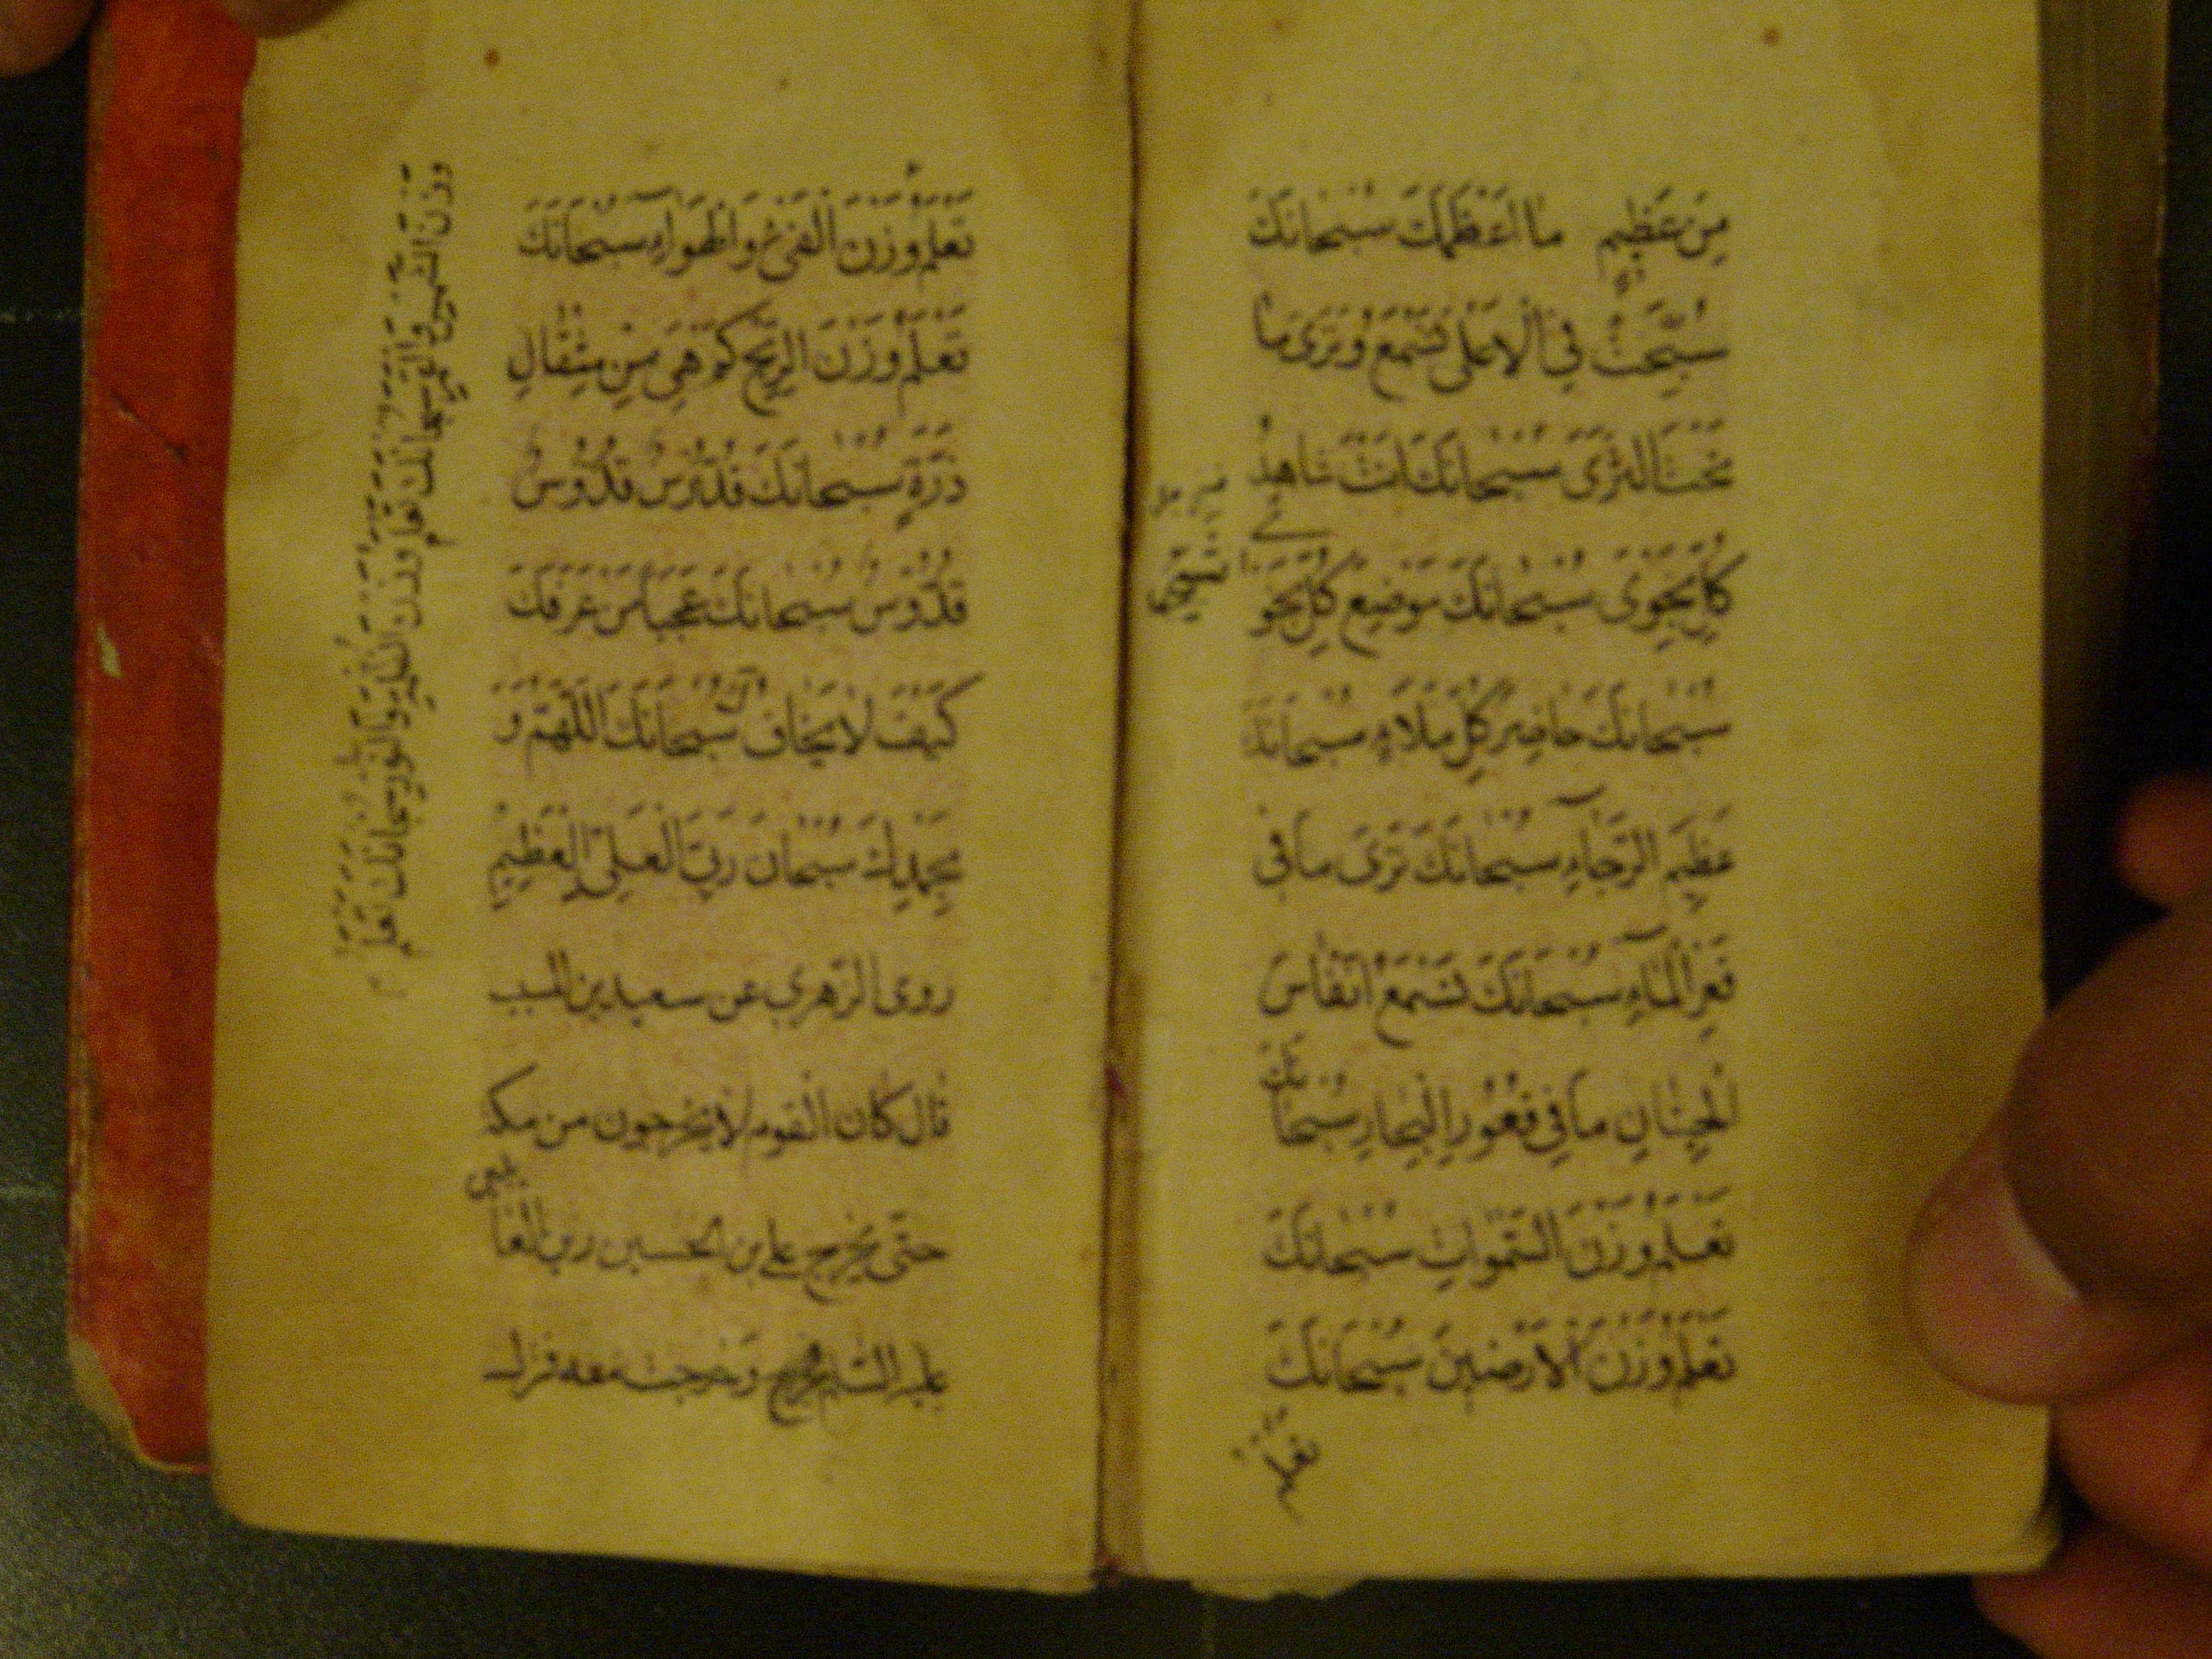 مِنْ عَظِيمٍ مَا اَعْظَمَكَ سُبْحَانَكَ
سُبِّحْتَ فِي الْاَعْلٰى تَسْمَعُ وَتَرٰى مَا
تَحْتَ الثَّرٰى سُبْحَانَكَ اَنْتَ شَاهِدُ
كُلِّ نَجْوٰى سُبْحَانَكَ مَوْضِعُ كُلِّ نَجْوٰ
سُبْحَانَكَ حَاضِرُ كُلِّ مَلَاءٍ سُبْحَانَكَ
عَظِيمَ الرَّجَآءِ سُبْحَانَكَ تَرٰى مَا فِي
قَعْرِ الْمَآءِ سُبْحَانَكَ تَسْمَعُ اَنْفَاسَ
الْحِيتَانِ مَا فِي قُعُورِ الْبِحَارِ سُبْحَانَكَ
تَعْلَمُ وَزْنَ السَّمٰوَاتِ سُبْحَانَكَ
تَعْلَمُ وَزْنَ الْاَرَضِينَ سُبْحَانَكَ
تَعْلَمُ
تَعْلَمُ وَزْنَ الْفَيْءِ وَالْهَوَآءِ سُبْحَانَكَ
تَعْلَمُ وَزْنَ الرِّيحِ كَمْ هِيَ مِنْ مِثْقَالِ
ذَرَّةٍ سُبْحَانَكَ قُدُّوسٌ قُدُّوسٌ
قُدُّوسٌ سُبْحَانَكَ عَجَبًا مَنْ عَرَفَكَ
كَيْفَ لَا يَخَافُكَ سُبْحَانَكَ اللّٰهُمَّ وَ
بِحَمْدِكَ سُبْحَانَ رَبِّيَ الْعَلِيِّ الْعَظِيمِ
روى الزهري عن سعيد بن المسيب
قال كان القوم لا يخرجون من مكة
حتى يخرج علي بن الحسين زين العابدين
عليه السلم فخرج وخرجت معه فنزل
وَزْنَ الشَّمْسِ وَالْقَمَرِ سُبْحَانَكَ تَعْلَمُ وَزْنَ الظُّلْمَةِ وَالنُّورِ سُبْحَانَكَ تَعْلَمُ